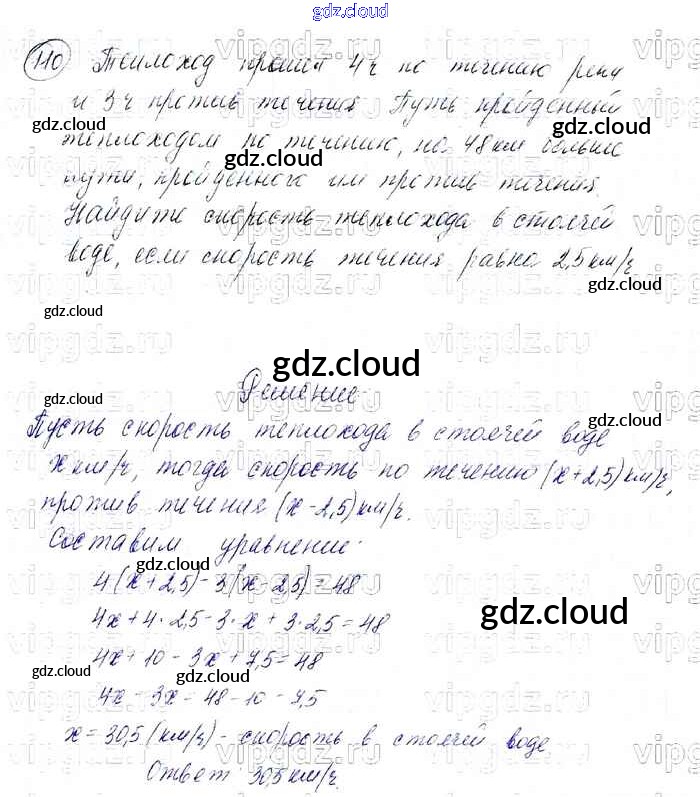 gdz.cloud
110 Теплоход прошел 4ч по течению реки
и 3ч против течения. Путь, пройденный
gdz.cloud gdz.cloud
теплоходом по течению, на 48км больше
gdz.cloud
пути, пройденного им против течения.
gdz.cloud gdz.cloud
Найдите скорость теплохода в стоячей
воде, если скорость течения равна 2,5 км/ч
gdz.cloud
gdz.cloud
gdz.cloud
Решение
gdz.cloud
Пусть скорость теплохода в стоячей воде
x км/ч, тогда скорость по течению (x+2,5) км/ч,
против течения (x-2,5) км/ч.
Составим уравнение:
gdz.cloud
4(x+2,5)-3(x-2,5)=48
gdz.cloud
4x+4·2,5-3·x+3·2,5=48
4x+10-3x+7,5=48
gdz.cloud gdz.cloud
4x-3x=48-10-7,5
x=30,5 (км/ч) - скорость в стоячей воде
gdz.cloud
Ответ: 30,5 км/ч.